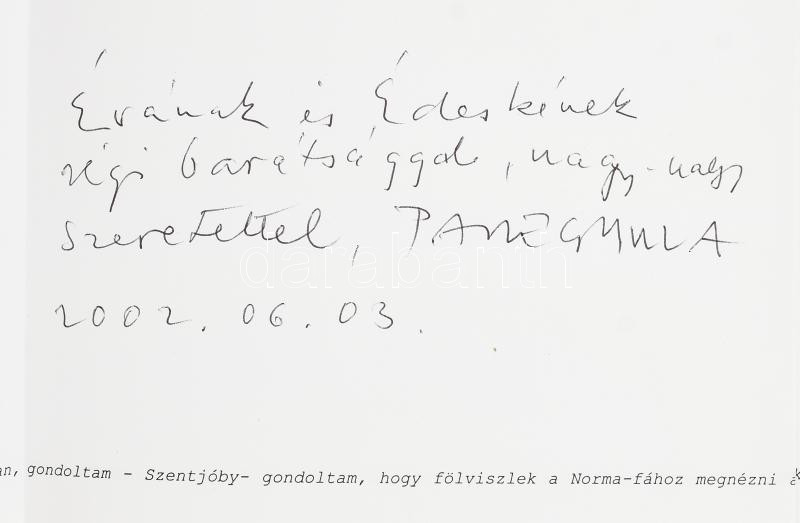 Évának és Édeskének
régi barátsággal, nagy-nagy
szeretettel, PAUER GYULA
2002. 06. 03.
darabanth
an, gondoltam - Szentjóby- gondoltam, hogy fölviszlek a Norma-fához megnézni a